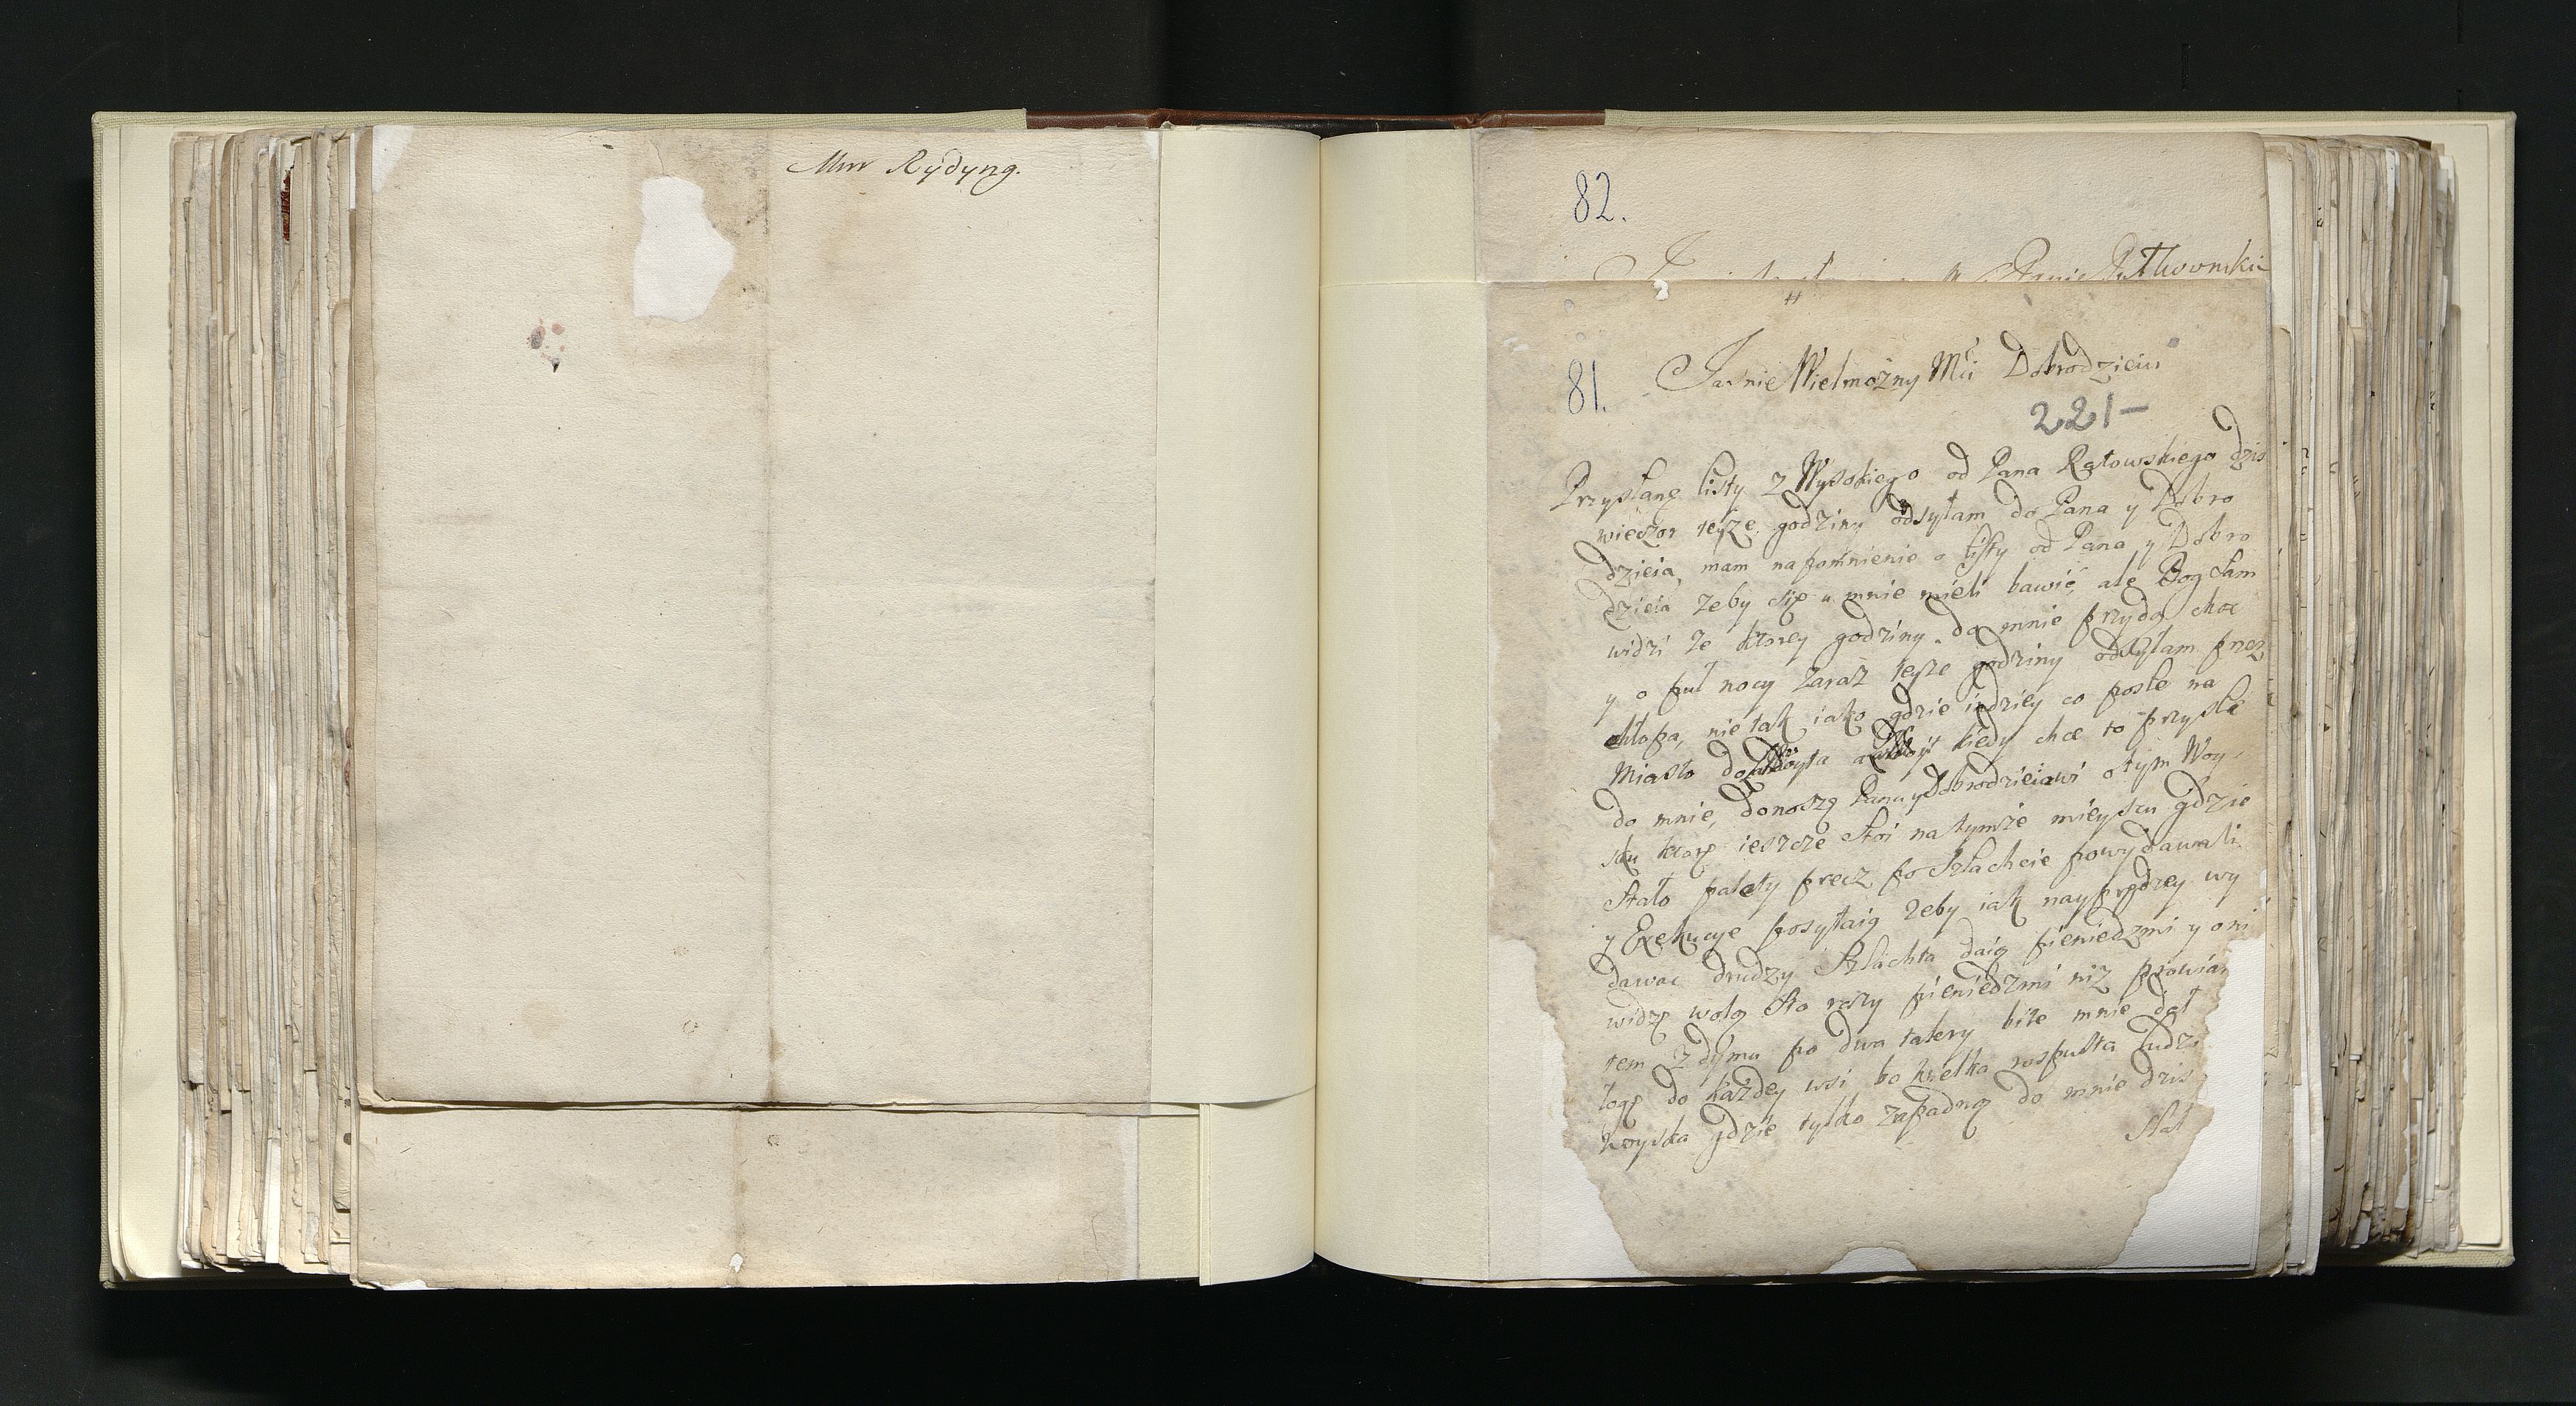 Mnr Rydyng.
82.
Panie Rutkowski
81.
Jasnie Wielmożny Mci Dobrodzieiu
221-
Przysłane listy z Wysokiego od Pana Rątowskiego dzis
wieczor teyze godziny odsyłam do Pana y Dobro
dzieia, mam napomnienie o listy od Pana y Dobro
dzieia zeby się u mnie mieli bawić, ale Bog sam
widzi ze ktorey godziny do mnie przydą choc
y o puł nocy zaraz teyze godziny odsyłam przez
chłopa, nie tak iako gdzie indziey co posle na
Miasto do kiedy chce to przysle
do mnie, donoszę Panu y Dobrodzieiowi o tym Woy-
sku ktore ieszcze stoi na tymze mieyscu gdzie
stało palety precz po Szlachcie powydawali
y Exekucye posyłaią zeby iak nayprędzey wy
dawac drudzy Szlachta daią pieniedzmi y oni
widzę wolą sto razy pieniedzmi niz prowian
tem z dymu po dwa talery bite mnie dał
do każdey wsi bo wielka rospusta ludzi
woyska gdzie tylko zapadną do mnie dzis